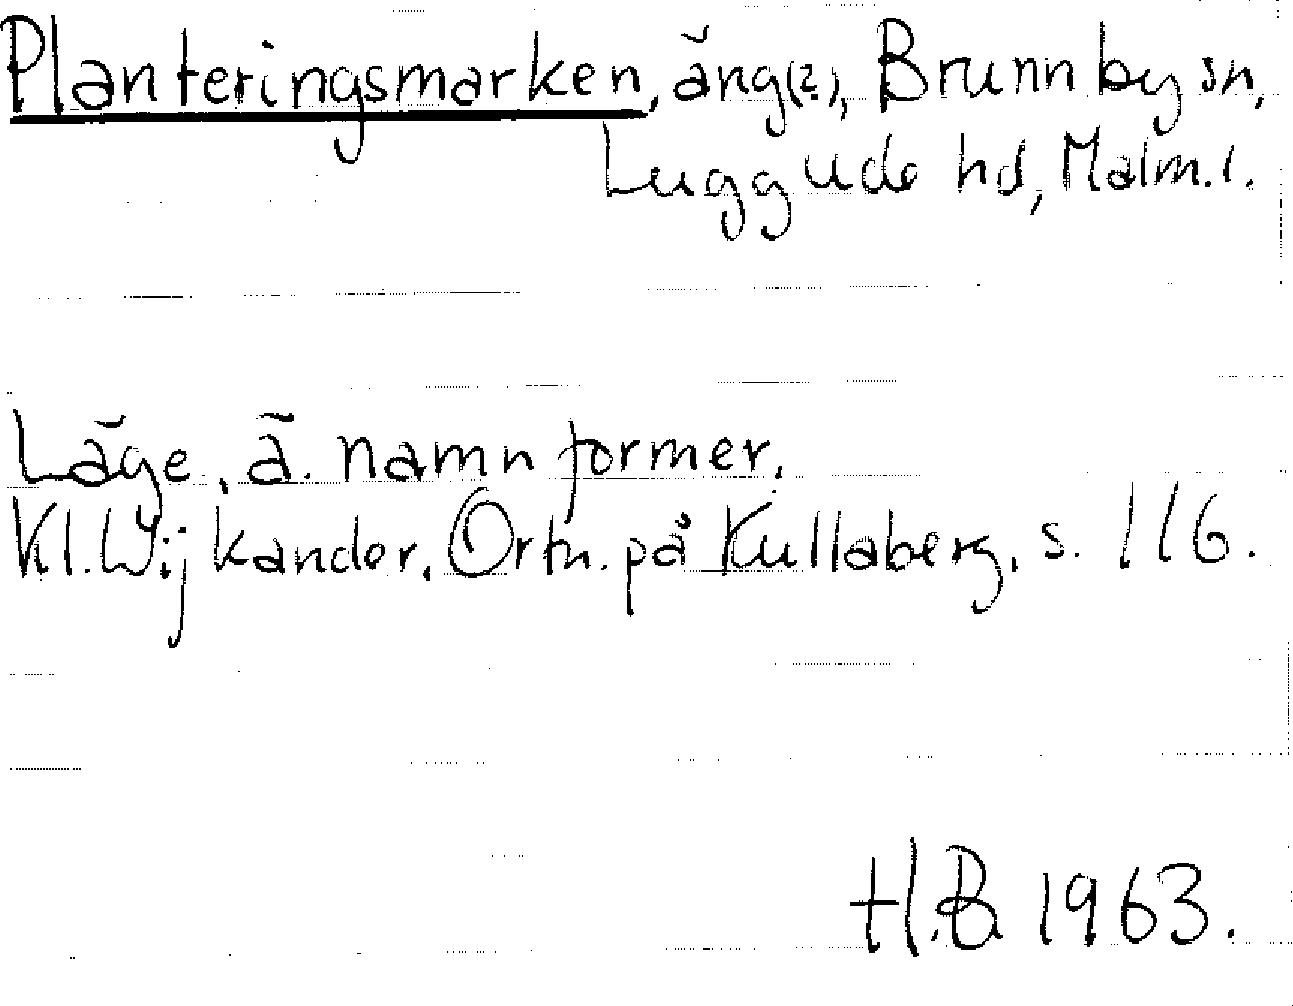 Planteringsmarken, äng(?), Brunnby sn,
Luggude hd, Malm.l.
Läge, ä. namnformer.
Kl. Wijkander, Ortn. på Kullaberg, s. 116.
H.B 1963.